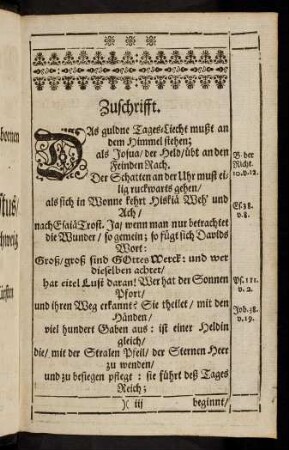 bornen
stus/
chweig
ürsten
Zuschrifft.
DAs guldne Tages-Liecht mußt an
dem Himmel stehen;
als Josua/ der Held/ übt an den
Feinden Rach.
Der Schatten an der Uhr must ei-
lig ruckwarts gehen/
als sich in Wonne kehrt Hiskiä Weh' und
Ach/
nach Esaiä Trost. Ja/ wenn man nur betrachtet
die Wunder/ so gemein; so fügt sich Davids
Wort:
Groß/ groß sind GOttes Werck: und wer
dieselben achtet/
hat eitel Lust daran! Wer hat der Sonnen
Pfort/
und ihren Weg erkannt? Sie theilet/ mit den
Händen/
viel hundert Gaben aus: ist einer Heldin
gleich/
die/ mit der Stralen Pfeil/ der Sternen Heer
zu wenden/
und zu besiegen pflegt: sie führt deß Tages
Reich;
)( iij
beginnt/
B. der
Richt.
10. v. 12.
Es. 38.
v. 8.
Ps. 111.
v. 2.
Job. 38.
v. 19.